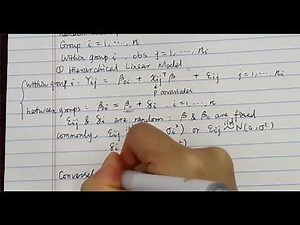 Group i = 1, ..., n
Within group i, obs j = 1, ..., ni
① Hierarchical Linear Model
within group i: Yij = β0i + xijᵀβ + εij j = 1, ..., ni
p covariates
between groups: β0i = β0 + δi i = 1, ..., n
εij & δi are random; β & β0 are fixed
commonly, εij σi²) or εij iid~ N(0, σ²)
δi
Converse